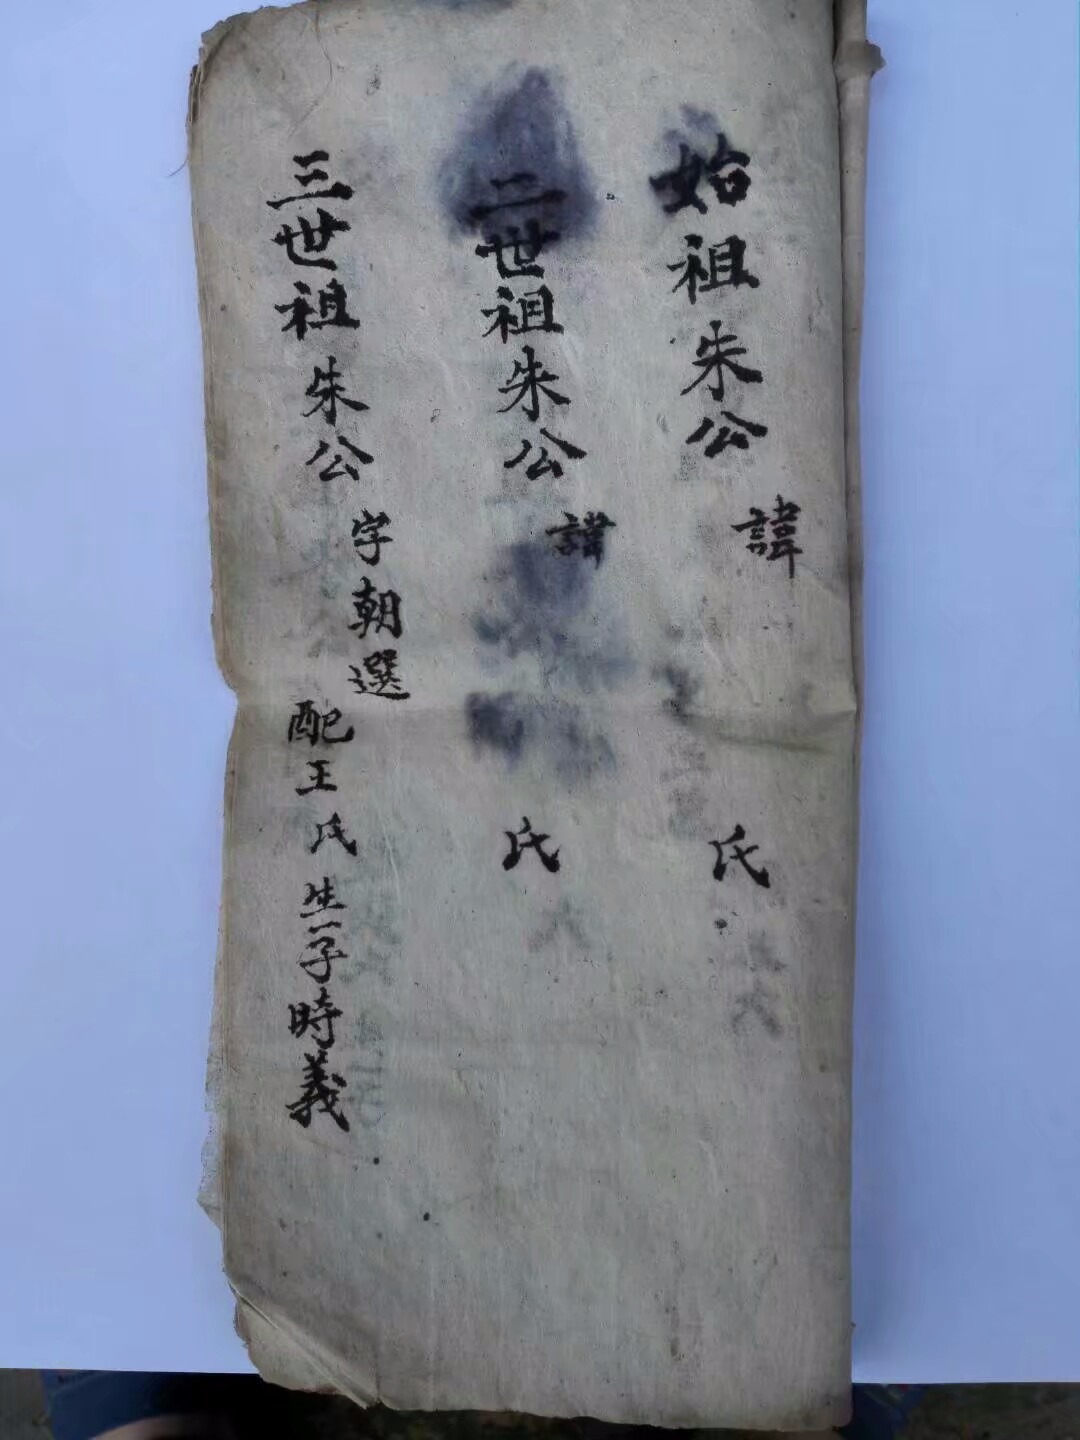 始祖朱公 諱 氏
二世祖朱公 諱 氏
三世祖朱公 字朝選 配王氏 生一子時義